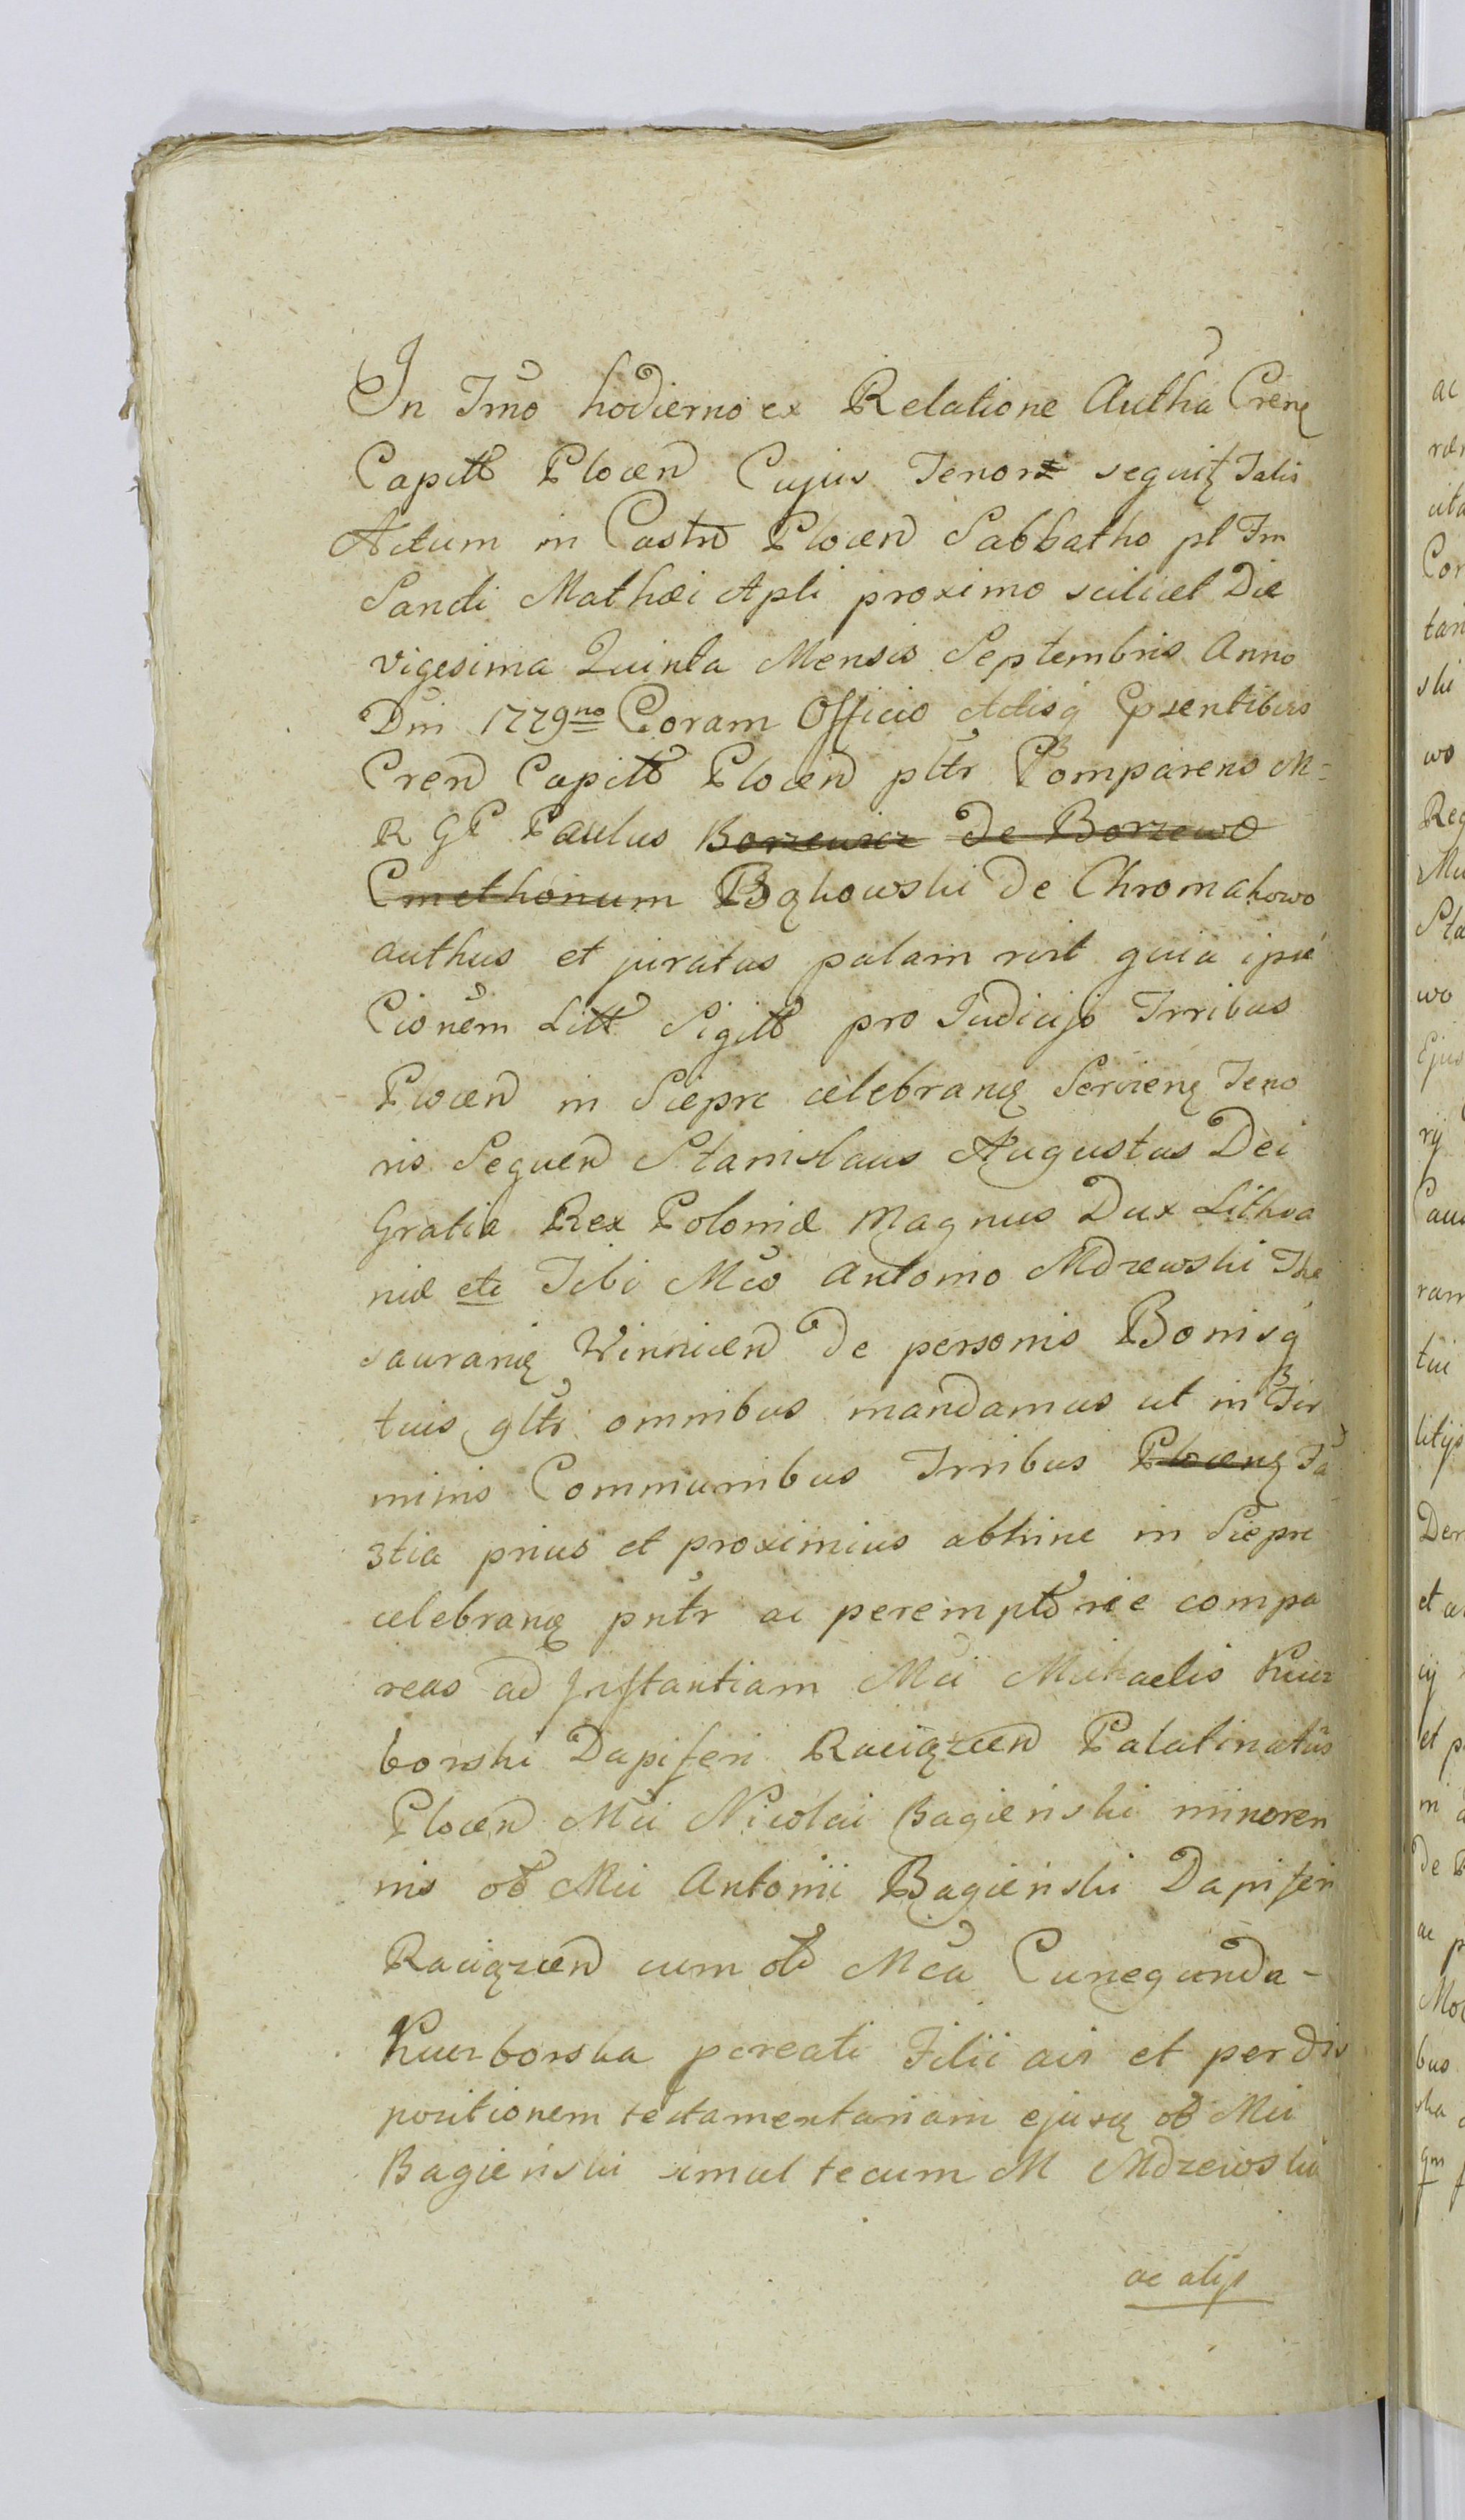 In Trno hodierno ex Relatione Authã Crenę
Capitt Plocen Cujus Tenor sequitz Talis
Actum in Castro Plocen Sabbatho pt Fm
Sancti Mathæi Apli proximo scilicet Die
vigesima Quinta Mensis Septembris Anno
Dni 1779no Coram Officio Actisq Psentibus
Cren Capitt Plocen pltr Comparens M=
R G P Paulus Borzewicz de Borzewo
Cmethonum Bąkowski de Chromakowo
authus et juratus palam rvit quia ipse
Cionem Litt Sigitt pro Judicijs Trribus
Plocen in Sieprc celebranę Servienę Teno
ris Sequen Stanislaus Augustus Dei
Gratia Rex Poloniæ Magnus Dux Lithva
niæ etc Tibi Mco Antonio Mdzewski The
sauranię Winnicen de personis Bonisq
tuis gltr omnibus mandamus ut in Ter
minis Communibus Trribus Plocenę Ju
stia prius et proximius abhinc in Sieprc
celebranę pntr ac peremptorie compa
reas ad Instantiam Mci Michaelis Kucz
borski Dapiferi Raciązcen Palatinatus
Plocen Mci Nicolai Bagieński minoren
nis ol Mci Antonii Bagieński Dapiferi
Raciązcen cum ol Mca Cunegunda -
Kuczborska pcreati Filii acs et per dis
positionem testamentariam ejusq ol Mci
Bagieński simul tecum M Mdzewski
ac alijs
ac
Cor
tan
ski
wo
Reg
Mu
Sta
wo
Ejus
rij
Cau
ram
tui
litijs
Der
et
et p
in
de
ac p
Mo
bus
ska
qm